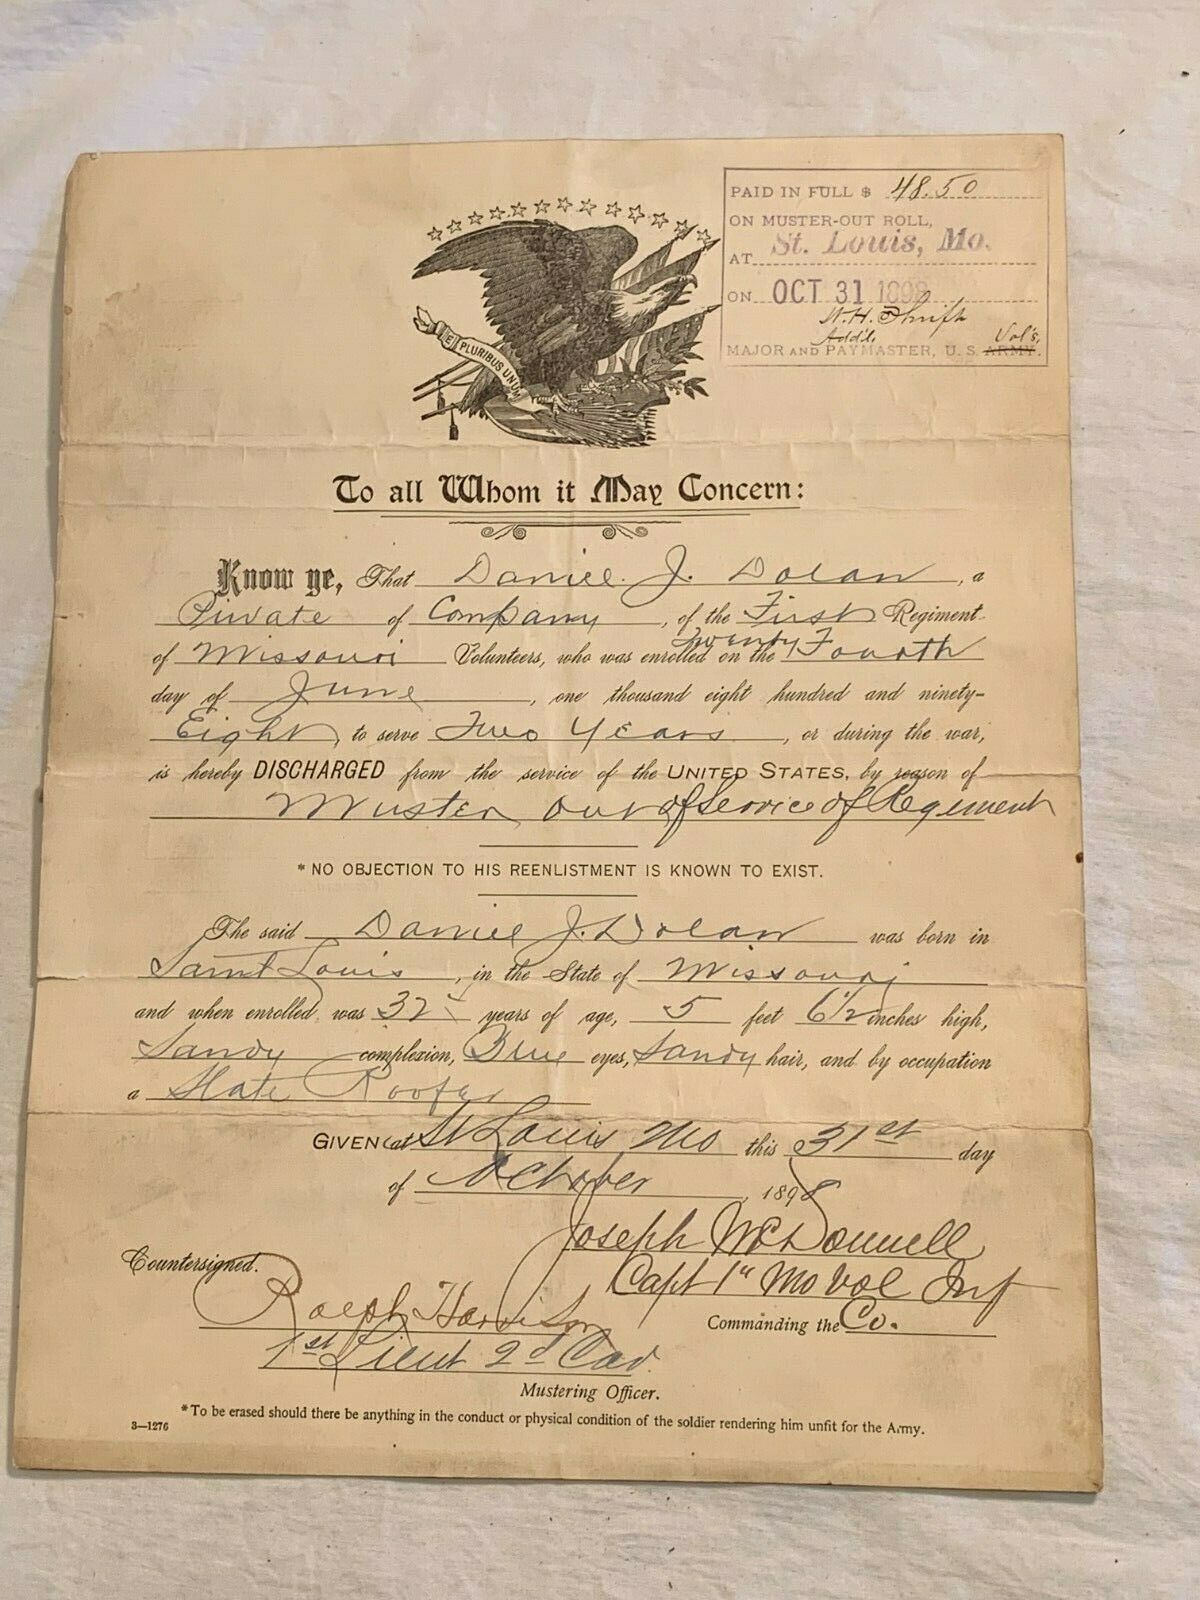 PAID IN FULL $ 48.50
ON MUSTER-OUT ROLL,
AT St. Louis, Mo.
ON OCT 31 1898
W.H. Thrift
Add'l. Vol's,
MAJOR AND PAYMASTER, U.S. ARMY.
E PLURIBUS UNUM
To all Whom it May Concern:
Know ye, That Daniel J. Dolan, a
Private of Company, of the First Regiment
of Missouri Volunteers, who was enrolled on the Twenty Fourth
day of June, one thousand eight hundred and ninety-
Eight, to serve Two Years, or during the war,
is hereby DISCHARGED from the service of the UNITED STATES, by reason of
Muster out of Service of Regiment
* NO OBJECTION TO HIS REENLISTMENT IS KNOWN TO EXIST.
The said Daniel J. Dolan was born in
Saint Louis, in the State of Missouri
and when enrolled was 32 years of age, 5 feet 6 1/2 inches high,
Sandy complexion, Blue eyes, Sandy hair, and by occupation
a Slate Roofer
GIVEN at St Louis Mo this 31st day
of October 1898
Joseph McDonnell
Capt 1st Mo Vol Inf
Commanding the Co.
Countersigned.
Ralph Harrison
1st Lieut 2d Cav.
Mustering Officer.
*To be erased should there be anything in the conduct or physical condition of the soldier rendering him unfit for the Army.
3—1276